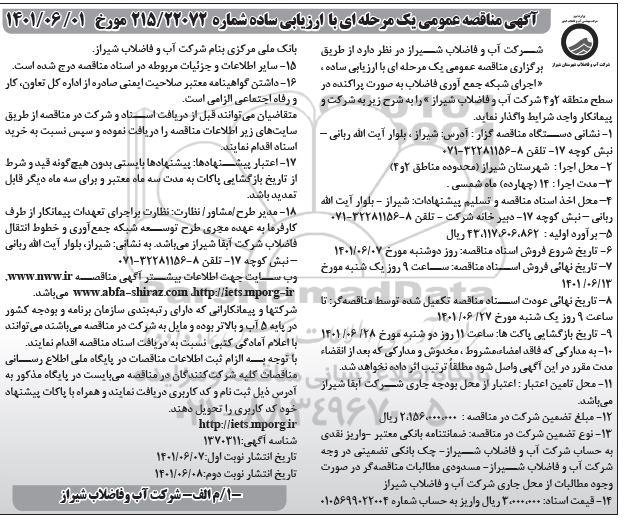 آگهی مناقصه عمومی یک مرحله ای با ارزیابی ساده شماره ۲۱۵/۲۲۰۷۲ مورخ ۱۴۰۱/۰۶/۰۱
شرکت آب و فاضلاب شهرستان شیراز
شــرکت آب و فاضلاب شــیراز در نظر دارد از طریق
برگزاری مناقصه عمومی یک مرحله ای با ارزیابی ساده ،
«اجرای شبکه جمع آوری فاضلاب به صورت پراکنده در
سطح منطقه ۲و۴ شرکت آب و فاضلاب شیراز» را به شرح زیر به شرکت و
پیمانکار واجد شرایط واگذار نماید.
۱- نشانی دستگاه مناقصه گزار : آدرس: شیراز ، بلوار آیت الله ربانی –
نبش کوچه ۱۷- تلفن ۸-۳۲۲۸۱۱۵۶-۰۷۱
۲- محل اجرا : شهرستان شیراز (محدوده مناطق ۲و۴)
۳- مدت اجرا : ۱۴ (چهارده) ماه شمسی .
۴- محل اخذ اسناد مناقصه و تسلیم پیشنهادات: شیراز – بلوار آیت الله
ربانی – نبش کوچه ۱۷- دبیر خانه شرکت - تلفن ۸-۳۲۲۸۱۱۵۶-۰۷۱
۵- برآورد اولیه : ۴۳،۱۱۷،۶۰۶،۸۶۲ ریال.
۶- تاریخ شروع فروش اسناد مناقصه: روز دوشنبه مورخ ۱۴۰۱/۰۶/۰۷
۷- تاریخ نهائی فروش اسناد مناقصه: ساعت ۹ روز یک شنبه مورخ
۱۴۰۱/۰۶/۱۳
۸- تاریخ نهائی عودت اسناد مناقصه تکمیل شده توسط مناقصه‌گر: تا
ساعت ۹ روز یک شنبه مورخ ۱۴۰۱/۰۶/۲۷
۹- تاریخ بازگشایی پاکت ها: ساعت ۱۱ روز دو شنبه مورخ ۱۴۰۱/۰۶/۲۸
۱۰- به مدارکی که فاقد امضاء، مشروط ، مخدوش و مدارکی که بعد از انقضاء
مدت مقرر در این آگهی واصل شود مطلقاً ترتیب اثر داده نخواهد شد.
۱۱- محل تامین اعتبار : اعتبار از محل بودجه جاری شــرکت آبفا شیراز
می‌باشد.
۱۲- مبلغ تضمین شرکت در مناقصه : ۲،۱۵۶،۰۰۰،۰۰۰ ریال
۱۳- نوع تضمین شرکت در مناقصه: ضمانتنامه بانکی معتبر –واریز نقدی
به حساب شرکت آب و فاضلاب شیراز- چک بانکی تضمینی در وجه
شرکت آب و فاضلاب شــیراز- مسدودی مطالبات مناقصه‌گر در صورت
وجود مطالبات از محل جاری شرکت آب و فاضلاب شیراز
۱۴- قیمت اسناد: ۳،۰۰۰،۰۰۰ ریال واریز به حساب شماره ۰۱۰۵۶۹۹۰۲۲۰۰۴
بانک ملی مرکزی بنام شرکت آب و فاضلاب شیراز.
۱۵- سایر اطلاعات و جزئیات مربوطه در اسناد مناقصه درج شده است.
۱۶- داشتن گواهینامه معتبر صلاحیت ایمنی صادره از اداره کل تعاون، کار
و رفاه اجتماعی الزامی است.
متقاضیان می‌توانند قبل از دریافت اسناد و شرکت در مناقصه از طریق
سایت‌های زیر اطلاعات مناقصه را دریافت نموده و سپس نسبت به خرید
اسناد اقدام نمایند.
۱۷- اعتبار پیشــنهادها: پیشنهادها بایستی بدون هیچ‌گونه قید و شرط
از تاریخ بازگشایی پاکات به مدت سه ماه معتبر و برای سه ماه دیگر قابل
تمدید باشد.
۱۸- مدیر طرح/مشاور/ نظارت: نظارت براجرای تعهدات پیمانکار از طرف
کارفرما به عهده مجری طرح توســعه شبکه جمع‌آوری و خطوط انتقال
فاضلاب شرکت آبفا شیراز می‌باشد. به نشانی: شیراز، بلوار آیت الله ربانی
– نبش کوچه ۱۷- تلفن ۸-۳۲۲۸۱۱۵۶-۰۷۱
وب ســایت جهت اطلاعات بیشــتر آگهی مناقصــه www.nww.ir,
www.abfa-shiraz.com ,http://iets.mporg-ir می‌باشد.
شرکتها و پیمانکارانی که دارای رتبه‌بندی سازمان برنامه و بودجه کشور
در پایه ۵ آب و بالاتر بوده و مایل به شرکت در مناقصه می‌باشند می‌توانند
با اعلام آمادگی کتبی نسبت به دریافت اسناد مناقصه اقدام نمایند.
با توجه بــه الزام ثبت اطلاعات مناقصات در پایگاه ملی اطلاع رســانی
مناقصات کلیه شرکت‌کنندگان در مناقصه می‌بایست در پایگاه مذکور به
آدرس ذیل ثبت نام و کد کاربری دریافت نمایند و همراه با پاکات پیشنهاد
خود کد کاربری را تحویل دهند.
http://iets.mporg.ir
شناسه آگهی: ۱۳۷۰۳۱۱
تاریخ انتشار نوبت اول: ۱۴۰۱/۰۶/۰۷
تاریخ انتشار نوبت دوم: ۱۴۰۱/۰۶/۰۸
۱/م الف- شرکت آب وفاضلاب شیراز